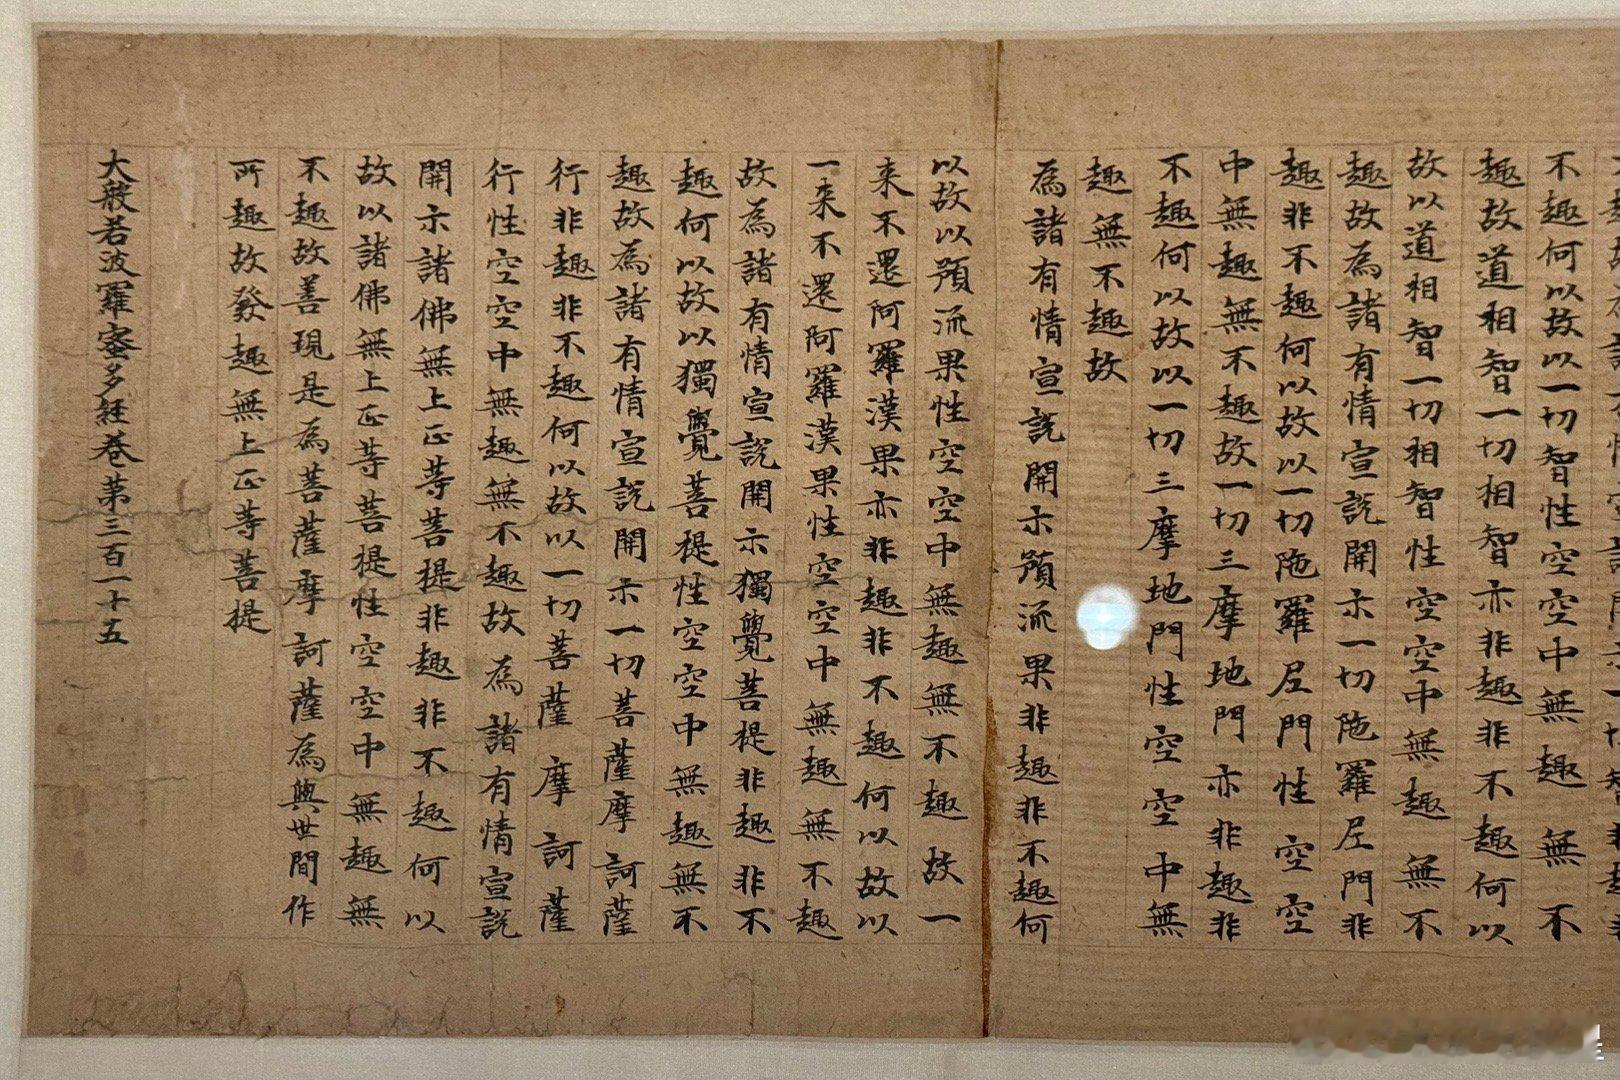 不趣何以故以一切智性空空中無趣無不
趣故道相智一切相智亦非趣非不趣何以
故以道相智一切相智性空空中無趣無不
趣故為諸有情宣説開示一切陁羅尼門非
趣非不趣何以故以一切陁羅尼門性空空
中無趣無不趣故一切三摩地門亦非趣非
不趣何以故以一切三摩地門性空空中無
趣無不趣故
為諸有情宣説開示預流果非趣非不趣何
以故以預流果性空空中無趣無不趣故一
来不還阿羅漢果亦非趣非不趣何以故以
一来不還阿羅漢果性空空中無趣無不趣
故為諸有情宣説開示獨覺菩提非趣非不
趣何以故以獨覺菩提性空空中無趣無不
趣故為諸有情宣説開示一切菩薩摩訶薩
行非趣非不趣何以故以一切菩薩摩訶薩
行性空空中無趣無不趣故為諸有情宣説
開示諸佛無上正等菩提非趣非不趣何以
故以諸佛無上正等菩提性空空中無趣無
不趣故善現是為菩薩摩訶薩為與世間作
所趣故發趣無上正等菩提
大般若波羅蜜多経卷第三百一十五